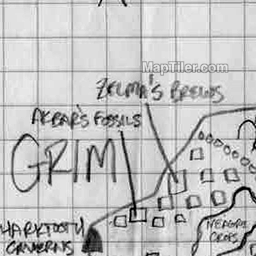 MapTiler.com
ZELMA'S BREWS
AKBAR'S FOSSILS
GRIM
HARKTOOTH
CAVERNS